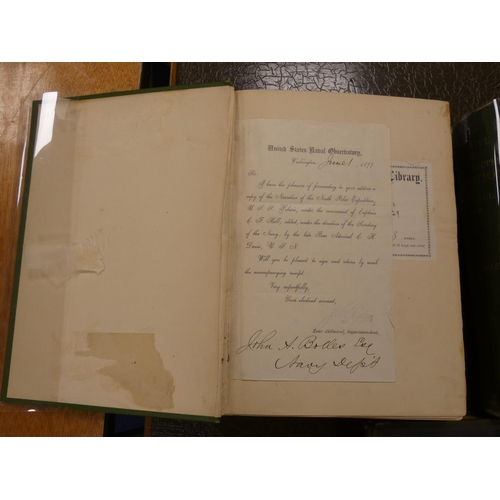 United States Naval Observatory,
Washington, June 1, 187
Sir:
I have the pleasure of forwarding to your address a
copy of the Narrative of the North Polar Expedition,
U. S. S. Polaris, under the command of Captain
C. F. Hall, edited, under the direction of the Secretary
of the Navy, by the late Rear Admiral C. H.
Davis, U. S. N.
Will you be pleased to sign and return by mail
the accompanying receipt.
Very respectfully,
Your obedient servant,
Rear Admiral, Superintendent.
John A. Bolles Esq
Navy Dep't
Library.